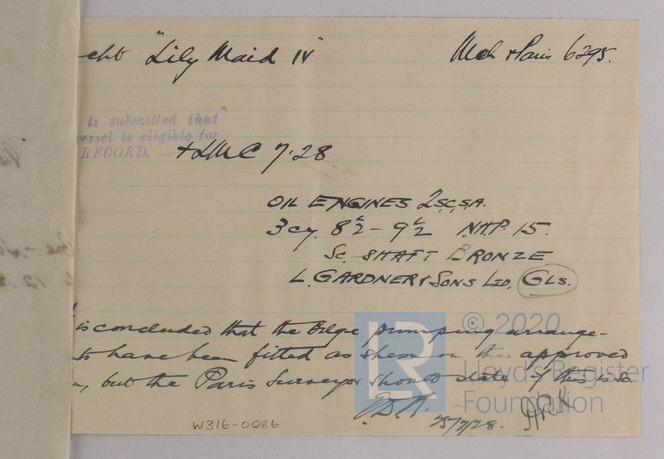 "Lily Maid IV" Mch & Paris 6295.
is submitted that
vessel is eligible for
RECORD. + LMC 7.28
OIL ENGINES 2S.C.S.A.
3 cy. 8½ - 9½ NHP 15.
Sc. SHAFT BRONZE
L. GARDNER & SONS LTD. GLS.
is concluded that the bilge pumping arrange-
have been fitted as shewn on the approved
but the Paris Surveyor should state if this is so
25/7/28.
W316-0086
© 2020
Lloyd's Register
Foundation